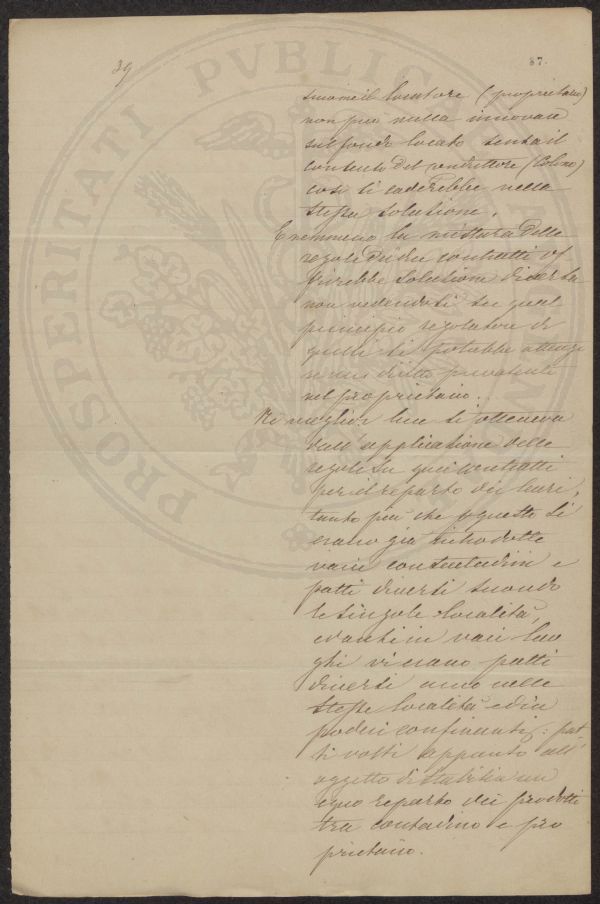 39
87.
PROSPERITATI PVBLICAE
il locatore (proprietario)
non può nulla innovare
sul fondo locato senza il
consenso del conduttore (Colono)
così si caderebbe nella
stessa soluzione.
E nemmeno la mistura delle
regole dei due contratti of
frirebbe soluzione diversa
non vedendosi su qual
principio regolatore di
quelli si potrebbe
diritti
nel proprietario.
Nè miglior luce si otteneva
dall'applicazione delle
regole su quei contratti
per il reparto dei
tanto più che a questo si
erano già introdotte
varie consuetudini e
patti diversi secondo
le singole località,
ed anzi in vari luo
ghi vi erano patti
diversi anco nelle
stesse località ed in
poderi confinanti: pat
ti volti appunto all'
oggetto di stabilire un
equo reparto dei prodotti
tra contadino e pro
prietario.